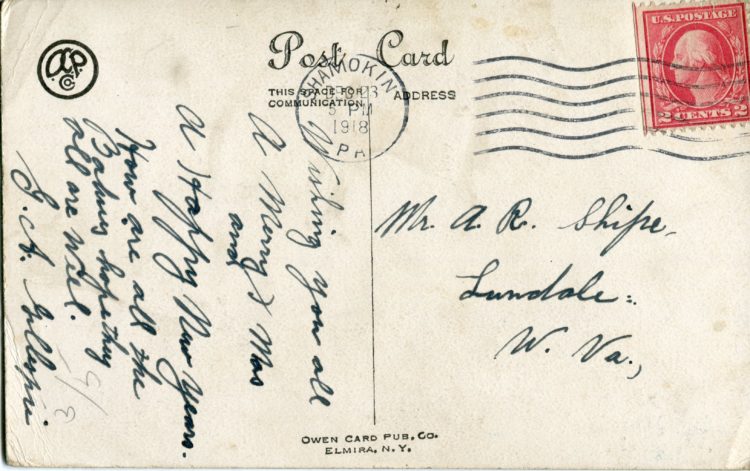 Post Card
THIS SPACE FOR
COMMUNICATION
ADDRESS
U.S. POSTAGE
2 CENTS 2
SHAMOKIN
DEC 23
5 PM
1918
PA
Wishing you all
A Merry X Mas
and
A Happy New Years.
How are all the
Babys hope they
all are well.
G. A. Gillespie
Mr. A. R. Shipe,
Lundale.
W. Va.,
OWEN CARD PUB. CO.
ELMIRA, N.Y.